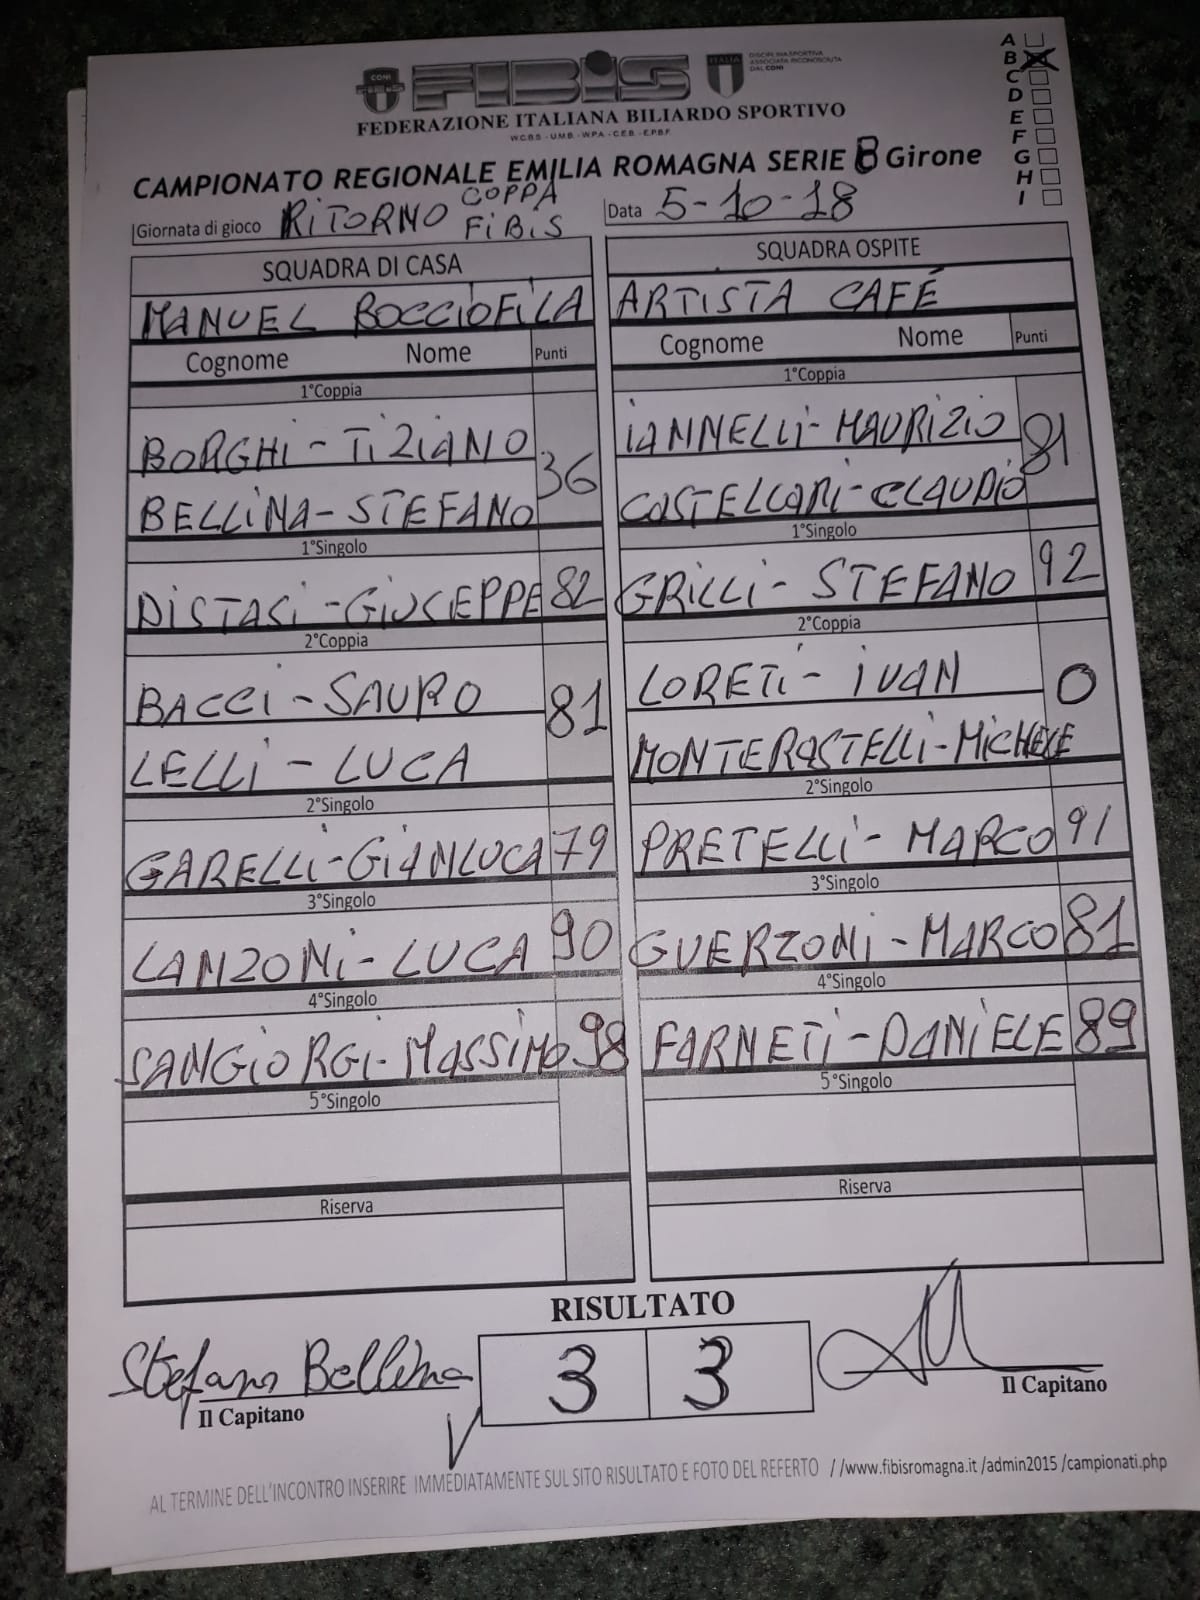 CONI
FIBiS
ITALIA
DISCIPLINA SPORTIVA
ASSOCIATA RICONOSCIUTA
DAL CONI
FEDERAZIONE ITALIANA BILIARDO SPORTIVO
W.C.B.S - U.M.B. - W.P.A - C.E.B. - E.P.B.F.
A
B
C
D
E
F
G
H
I
CAMPIONATO REGIONALE EMILIA ROMAGNA SERIE B Girone
Giornata di gioco RiTORNO COPPA FiBiS
Data 5-10-18
SQUADRA DI CASA
SQUADRA OSPITE
MANUEL BOCCIOFiLA
ARTISTA CAFÉ
Cognome Nome Punti
Cognome Nome Punti
1°Coppia
1°Coppia
BORGHi - TiZiANO
BELLiNA - STEFANO
36
iANNELLi - MAURiZiO
COSTELLARi - CLAUDiO
81
1°Singolo
1°Singolo
DiSTASi - GiUSEPPE 82
GRiLLi - STEFANO 92
2°Coppia
2°Coppia
BACCi - SAURO
LELLi - LUCA
81
LORETi - iVAN
MONTERASTELLi - MiCHELE
0
2°Singolo
2°Singolo
GARELLi - GiANLUCA 79
PRETELLi - MARCO 91
3°Singolo
3°Singolo
LANZONi - LUCA 90
GUERZONi - MARCO 81
4°Singolo
4°Singolo
SANGiORGi - MASSiMO 98
FARNETi - DANiELE 89
5°Singolo
5°Singolo
Riserva
Riserva
RISULTATO
3 3
Stefano Bellina
Il Capitano
Il Capitano
AL TERMINE DELL'INCONTRO INSERIRE IMMEDIATAMENTE SUL SITO RISULTATO E FOTO DEL REFERTO //www.fibisromagna.it /admin2015 /campionati.php